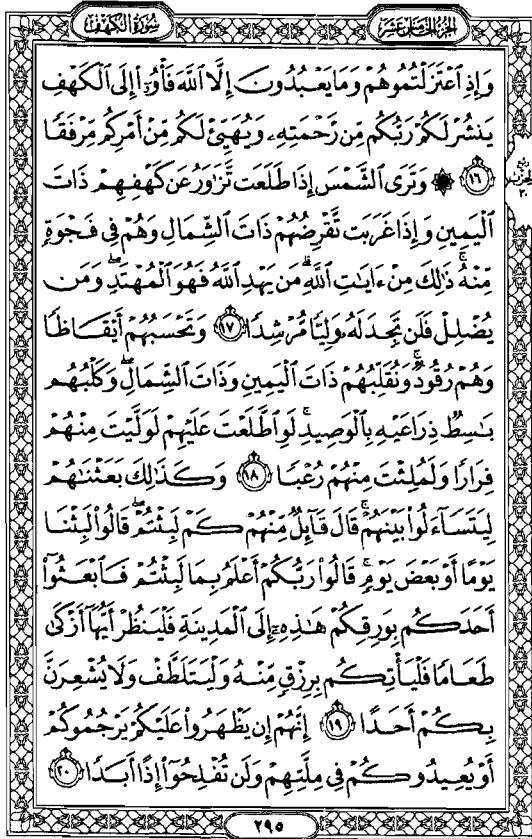 سورة الكهف
الجزء الخامس عشر
وَإِذِ ٱعۡتَزَلۡتُمُوهُمۡ وَمَا يَعۡبُدُونَ إِلَّا ٱللَّهَ فَأۡوُۥٓاْ إِلَى ٱلۡكَهۡفِ
يَنشُرۡ لَكُمۡ رَبُّكُم مِّن رَّحۡمَتِهِۦ وَيُهَيِّئۡ لَكُم مِّنۡ أَمۡرِكُم مِّرۡفَقٗا
١٦ ۞ وَتَرَى ٱلشَّمۡسَ إِذَا طَلَعَت تَّزَٰوَرُ عَن كَهۡفِهِمۡ ذَاتَ
ربع الحزب ٣٠
ٱلۡيَمِينِ وَإِذَا غَرَبَت تَّقۡرِضُهُمۡ ذَاتَ ٱلشِّمَالِ وَهُمۡ فِي فَجۡوَةٖ
مِّنۡهُۚ ذَٰلِكَ مِنۡ ءَايَٰتِ ٱللَّهِۗ مَن يَهۡدِ ٱللَّهُ فَهُوَ ٱلۡمُهۡتَدِۖ وَمَن
يُضۡلِلۡ فَلَن تَجِدَ لَهُۥ وَلِيّٗا مُّرۡشِدٗا ١٧ وَتَحۡسَبُهُمۡ أَيۡقَاظٗا
وَهُمۡ رُقُودٞۚ وَنُقَلِّبُهُمۡ ذَاتَ ٱلۡيَمِينِ وَذَاتَ ٱلشِّمَالِۖ وَكَلۡبُهُم
بَٰسِطٞ ذِرَاعَيۡهِ بِٱلۡوَصِيدِۚ لَوِ ٱطَّلَعۡتَ عَلَيۡهِمۡ لَوَلَّيۡتَ مِنۡهُمۡ
فِرَارٗا وَلَمُلِئۡتَ مِنۡهُمۡ رُعۡبٗا ١٨ وَكَذَٰلِكَ بَعَثۡنَٰهُمۡ
لِيَتَسَآءَلُواْ بَيۡنَهُمۡۚ قَالَ قَآئِلٞ مِّنۡهُمۡ كَمۡ لَبِثۡتُمۡۖ قَالُواْ لَبِثۡنَا
يَوۡمًا أَوۡ بَعۡضَ يَوۡمٖۚ قَالُواْ رَبُّكُمۡ أَعۡلَمُ بِمَا لَبِثۡتُمۡ فَٱبۡعَثُوٓاْ
أَحَدَكُم بِوَرِقِكُمۡ هَٰذِهِۦٓ إِلَى ٱلۡمَدِينَةِ فَلۡيَنظُرۡ أَيُّهَآ أَزۡكَىٰ
طَعَامٗا فَلۡيَأۡتِكُم بِرِزۡقٖ مِّنۡهُ وَلۡيَتَلَطَّفۡ وَلَا يُشۡعِرَنَّ
بِكُمۡ أَحَدًا ١٩ إِنَّهُمۡ إِن يَظۡهَرُواْ عَلَيۡكُمۡ يَرۡجُمُوكُمۡ
أَوۡ يُعِيدُوكُمۡ فِي مِلَّتِهِمۡ وَلَن تُفۡلِحُوٓاْ إِذًا أَبَدٗا ٢٠
٢٩٥